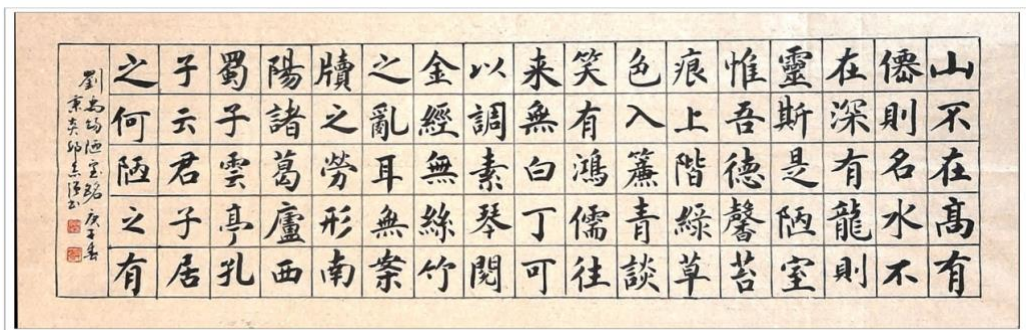 山不在高有
僊則名水不
在深有龍則
靈斯是陋室
惟吾德馨苔
痕上階綠草
色入簾青談
笑有鴻儒往
来無白丁可
以調素琴閱
金經無絲竹
之亂耳無案
牘之勞形南
陽諸葛廬西
蜀子雲亭孔
子云君子居
之何陋之有
劉禹錫陋室銘 庚子春